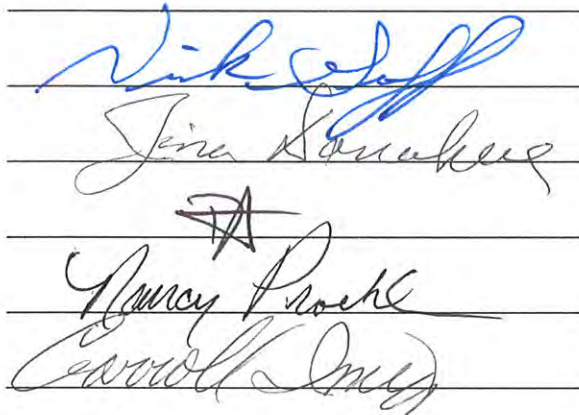 Nick Goff
Tina Donahue
Nancy Proehl
Carroll Imig